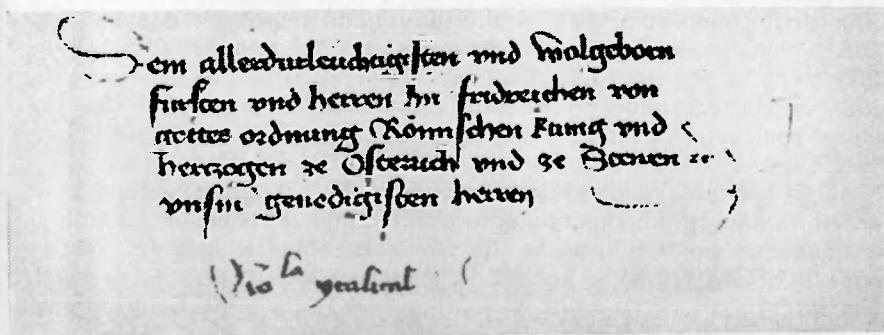 Dem allerdurleuchtigisten vnd wolgeborn
fursten vnd herren hn fridreichen von
gottes ordnung Römischen kunig vnd
hertzogen ze Osterrich vnd ze Steyren ꝛc
vnsm genedigisten herren